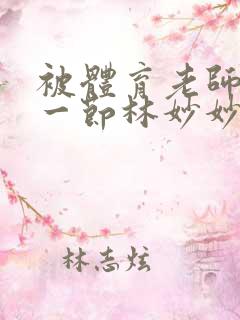 被體育老師
一節林妙妙
林志炫